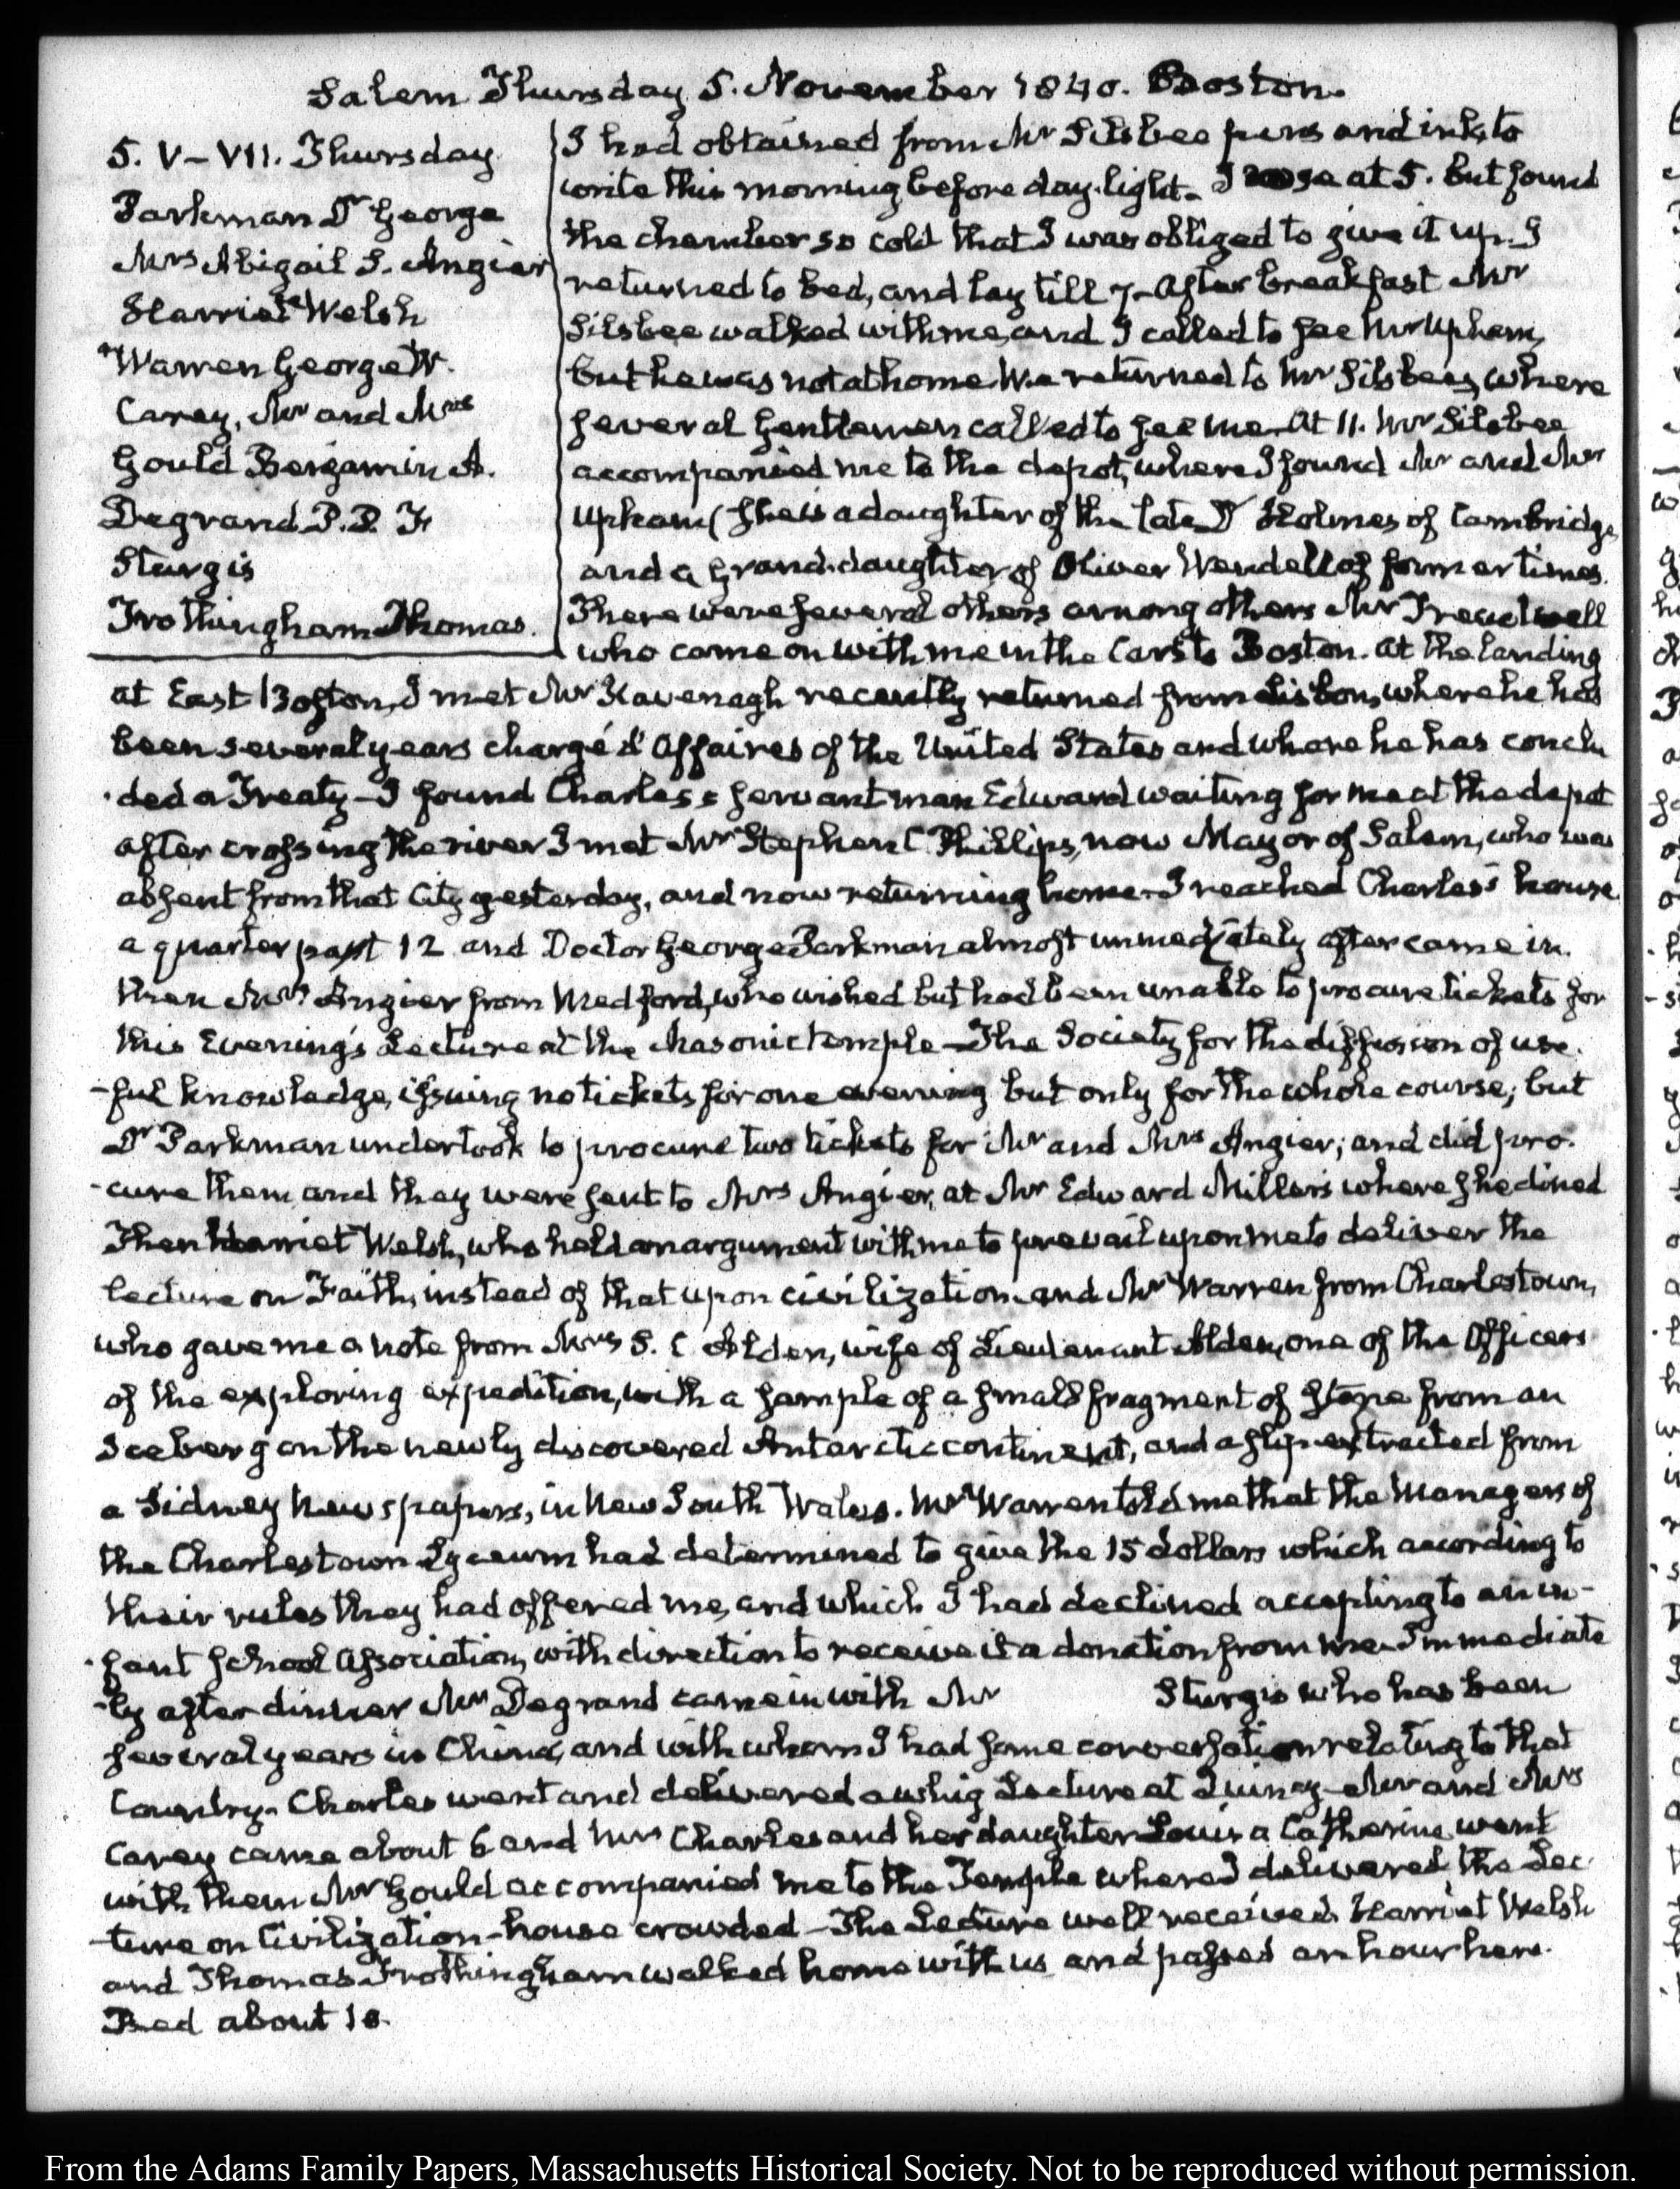 Salem Thursday 5. November 1840. Boston.
5. V–VII. Thursday
Parkman Dr George
Mrs Abigail S. Angier
Harriet Welsh
Warren George W.
Carey, Mr and Mrs
Gould Benjamin A.
Degrand P. P. F.
Sturgis
Frothingham Thomas.
I had obtained from Mr Silsbee pens and ink, to
write this morning before day-light. I rose at 5. but found
the chamber so cold that I was obliged to give it up. I
returned to bed, and lay till 7– After breakfast Mr
Silsbee walked with me, and I called to see Mr Upham,
but he was not at home. We returned to Mr Silsbee's, where
several Gentlemen called to see me. At 11. Mr Silsbee
accompanied me to the depot, where I found Mr and Mrs
Upham (she is a daughter of the late Dr Holmes of Cambridge
and a grand-daughter of Oliver Wendell of former times.
There were several others among others Mr Treadwell
who came on with me in the Cars to Boston. at the landing
at East Boston, I met Mr Kavenagh recently returned from Lisbon, where he has
been several years chargé d'Affaires of the United States and where he has conclu
-ded a Treaty– I found Charles's servant man Edward waiting for me at the depot
after crossing the river I met Mr Stephen C Phillips, now Mayor of Salem, who was
absent from that City yesterday, and now returning home. I reached Charles's house
a quarter past 12 and Doctor George Parkman almost immediately after came in.
then Mrs Angier from Medford, who wished but had been unable to procure tickets for
this Evening's Lecture at the Masonic temple– The Society for the diffusion of use-
-ful knowledge, issuing no tickets for one evening but only for the whole course; but
Dr Parkman undertook to procure two tickets for Mr and Mrs Angier; and did pro-
-cure them and they were sent to Mrs Angier, at Mr Edward Miller's where she dined
Then Harriet Welsh, who held an argument with me to prevail upon me to deliver the
lecture on Faith, instead of that upon civilization and Mr Warren from Charlestown,
who gave me a note from Mrs S. C Alden, wife of Lieutenant Alden, one of the Officers
of the exploring expedition, with a sample of a small fragment of stone from an
Iceberg on the newly discovered Antarctic continent, and a slip extracted from
a Sidney Newspapers, in New South Wales. Mr Warren told me that the Managers of
the Charlestown Lyceum had determined to give the 15 dollars which according to
their rules they had offered me, and which I had declined accepting to an in-
-fant school Association, with direction to receive it a donation from me. Immediate
-ly after dinner Mr Degrand came in with Mr Sturgis who has been
several years in China, and with whom I had some conversation relating to that
Country. Charles went and delivered a whig Lecture at Quincy– Mr and Mrs
Carey came about 6 and Mrs Charles and her daughter Louisa Catherine went
with them Mr Gould accompanied me to the Temple where I delivered the Lec
-ture on Civilization– house crowded– The Lecture well received. Harriet Welsh
and Thomas Frothingham walked home with us and passed an hour here.
Bed about 10.
From the Adams Family Papers, Massachusetts Historical Society. Not to be reproduced without permission.